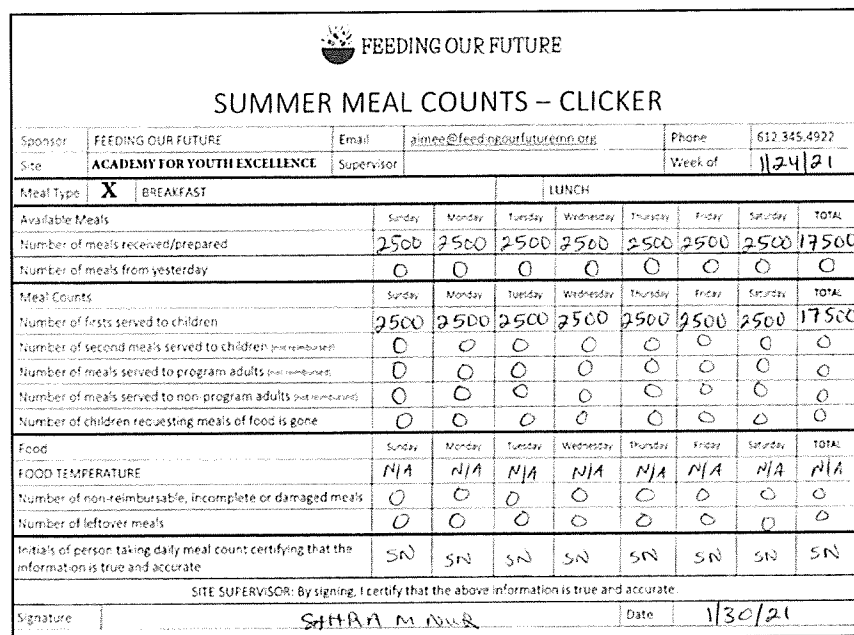 FEEDING OUR FUTURE
SUMMER MEAL COUNTS – CLICKER
Sponsor FEEDING OUR FUTURE Email aimee@feedingourfuturemn.org Phone 612.345.4922
Site ACADEMY FOR YOUTH EXCELLENCE Supervisor Week of 1/24/21
Meal Type X BREAKFAST LUNCH
Available Meals Sunday Monday Tuesday Wednesday Thursday Friday Saturday TOTAL
Number of meals received/prepared 2500 2500 2500 2500 2500 2500 2500 17500
Number of meals from yesterday 0 0 0 0 0 0 0 0
Meal Counts Sunday Monday Tuesday Wednesday Thursday Friday Saturday TOTAL
Number of firsts served to children 2500 2500 2500 2500 2500 2500 2500 17500
Number of second meals served to children (not reimbursed) 0 0 0 0 0 0 0 0
Number of meals served to program adults (not reimbursed) 0 0 0 0 0 0 0 0
Number of meals served to non-program adults (not reimbursed) 0 0 0 0 0 0 0 0
Number of children requesting meals of food is gone 0 0 0 0 0 0 0 0
Food Sunday Monday Tuesday Wednesday Thursday Friday Saturday TOTAL
FOOD TEMPERATURE N/A N/A N/A N/A N/A N/A N/A N/A
Number of non-reimbursable, incomplete or damaged meals 0 0 0 0 0 0 0 0
Number of leftover meals 0 0 0 0 0 0 0 0
Initials of person taking daily meal count certifying that the
information is true and accurate SN SN SN SN SN SN SN SN
SITE SUPERVISOR: By signing, I certify that the above information is true and accurate.
Signature M NUR Date 1/30/21